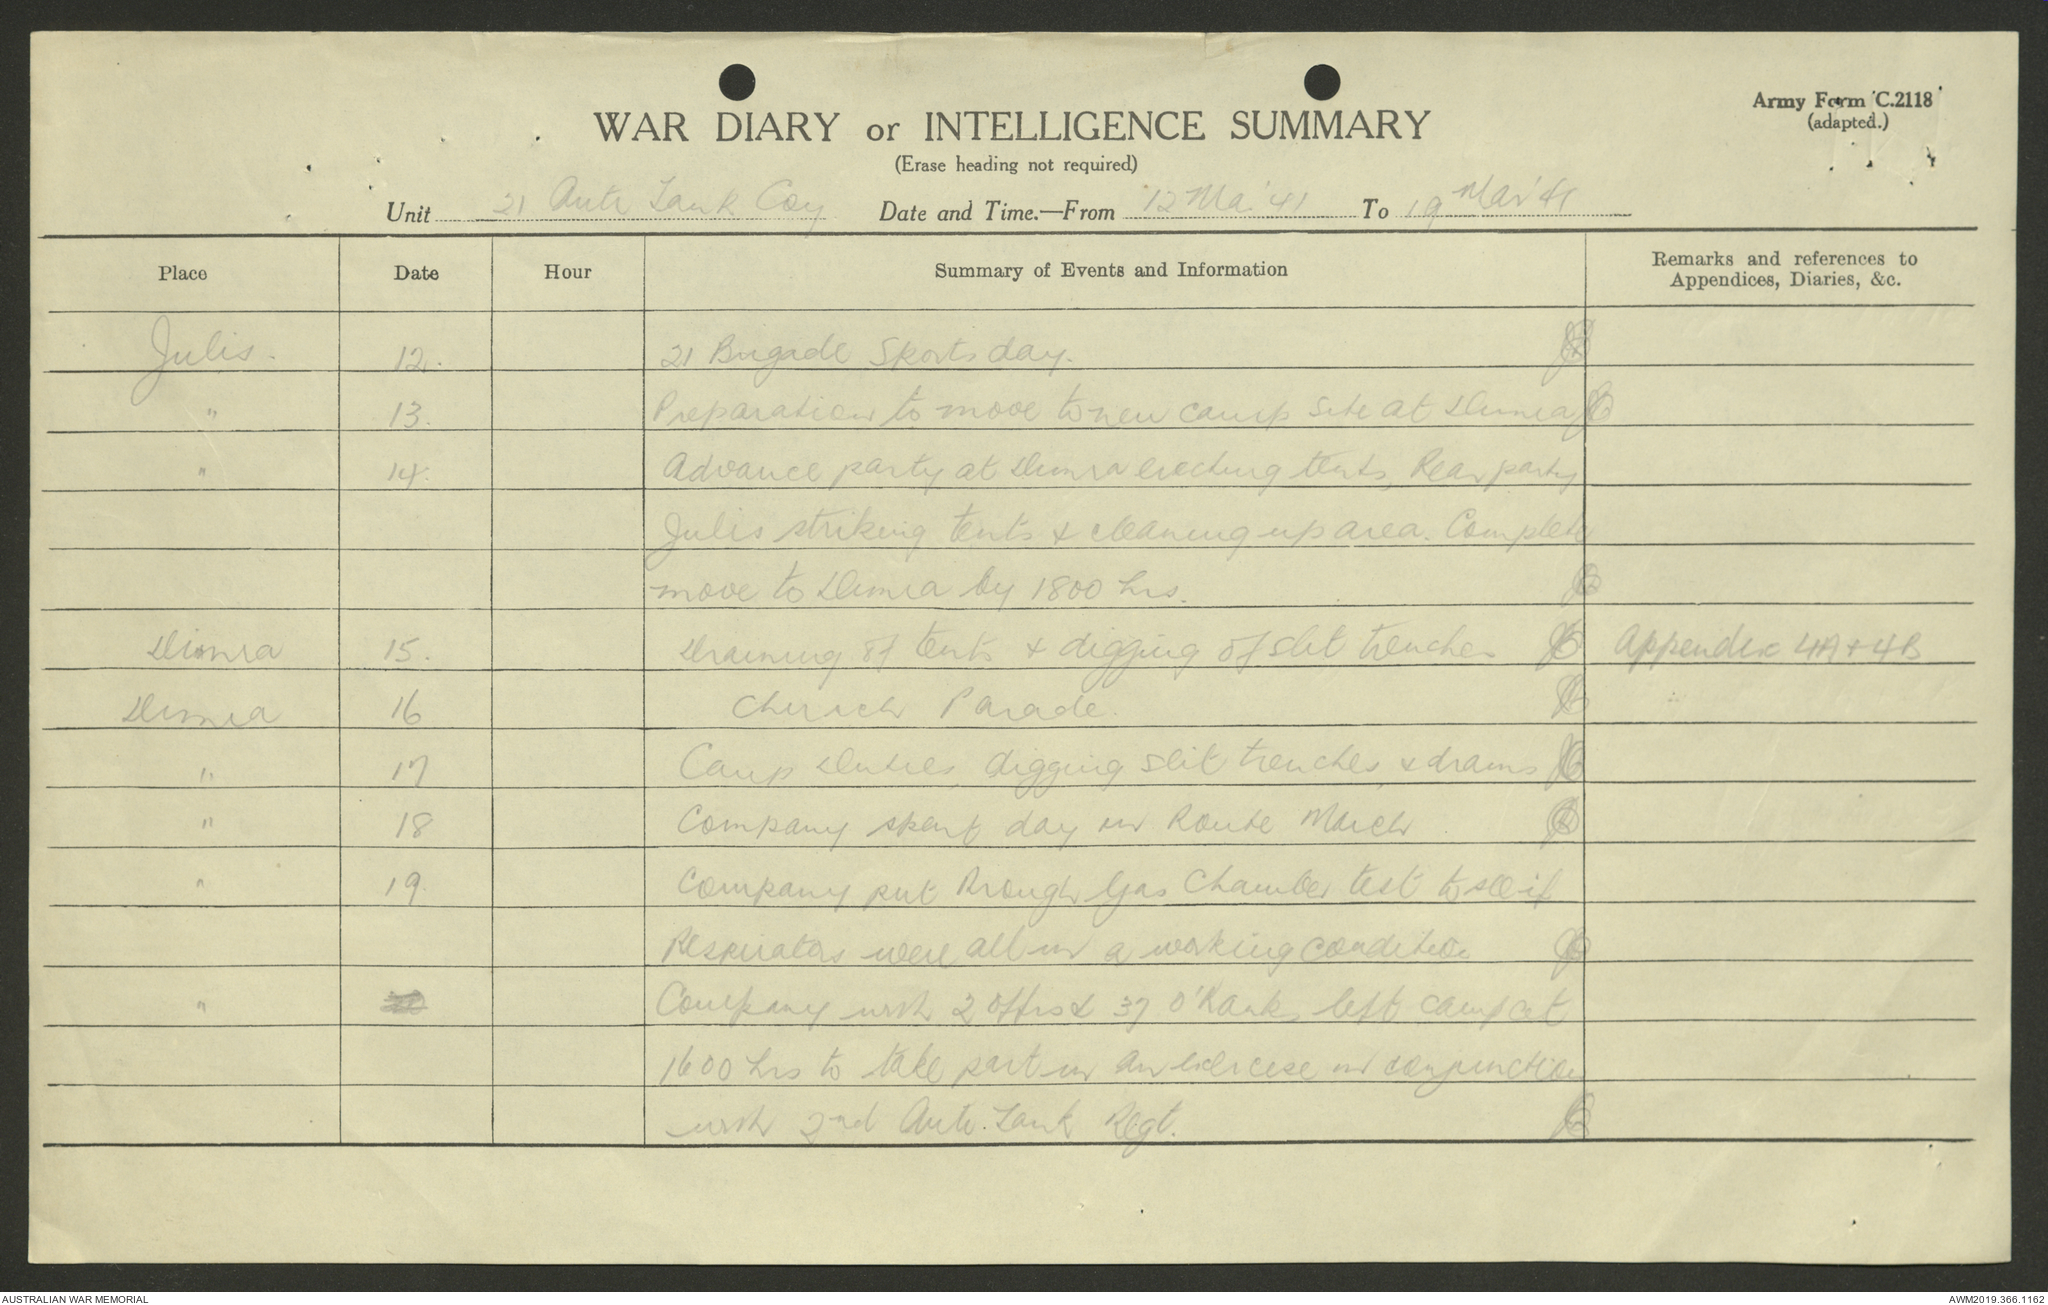 Army Form C.2118
(adapted.)
WAR DIARY or INTELLIGENCE SUMMARY
(Erase heading not required)
Unit 21 Anti Tank Coy Date and Time.—From 12 Mar '41 To 19 Mar '41
Place Date Hour Summary of Events and Information Remarks and references to Appendices, Diaries, &c.
Julis. 12. 21 Brigade Sports day.
" 13. Preparation to move to new camp site at Dimra
" 14. Advance party at Dimra erecting tents, Rear party
Julis striking tents & cleaning up area. Complete
move to Dimra by 1800 hrs.
Dimra 15. Draining of tents & digging of slit trenches Appendix 4A + 4B
Dimra 16 Church Parade.
" 17 Camp Duties, digging slit trenches & drains
" 18 Company spent day in Route March.
" 19. Company put through Gas Chamber test to see if
Respirators were all in a working condition
" Company with 2 offrs & 37 O'Ranks left camp at
1600 hrs to take part in an exercise in conjunction
with 2nd Anti. Tank Regt.
AUSTRALIAN WAR MEMORIAL AWM2019.366.1162